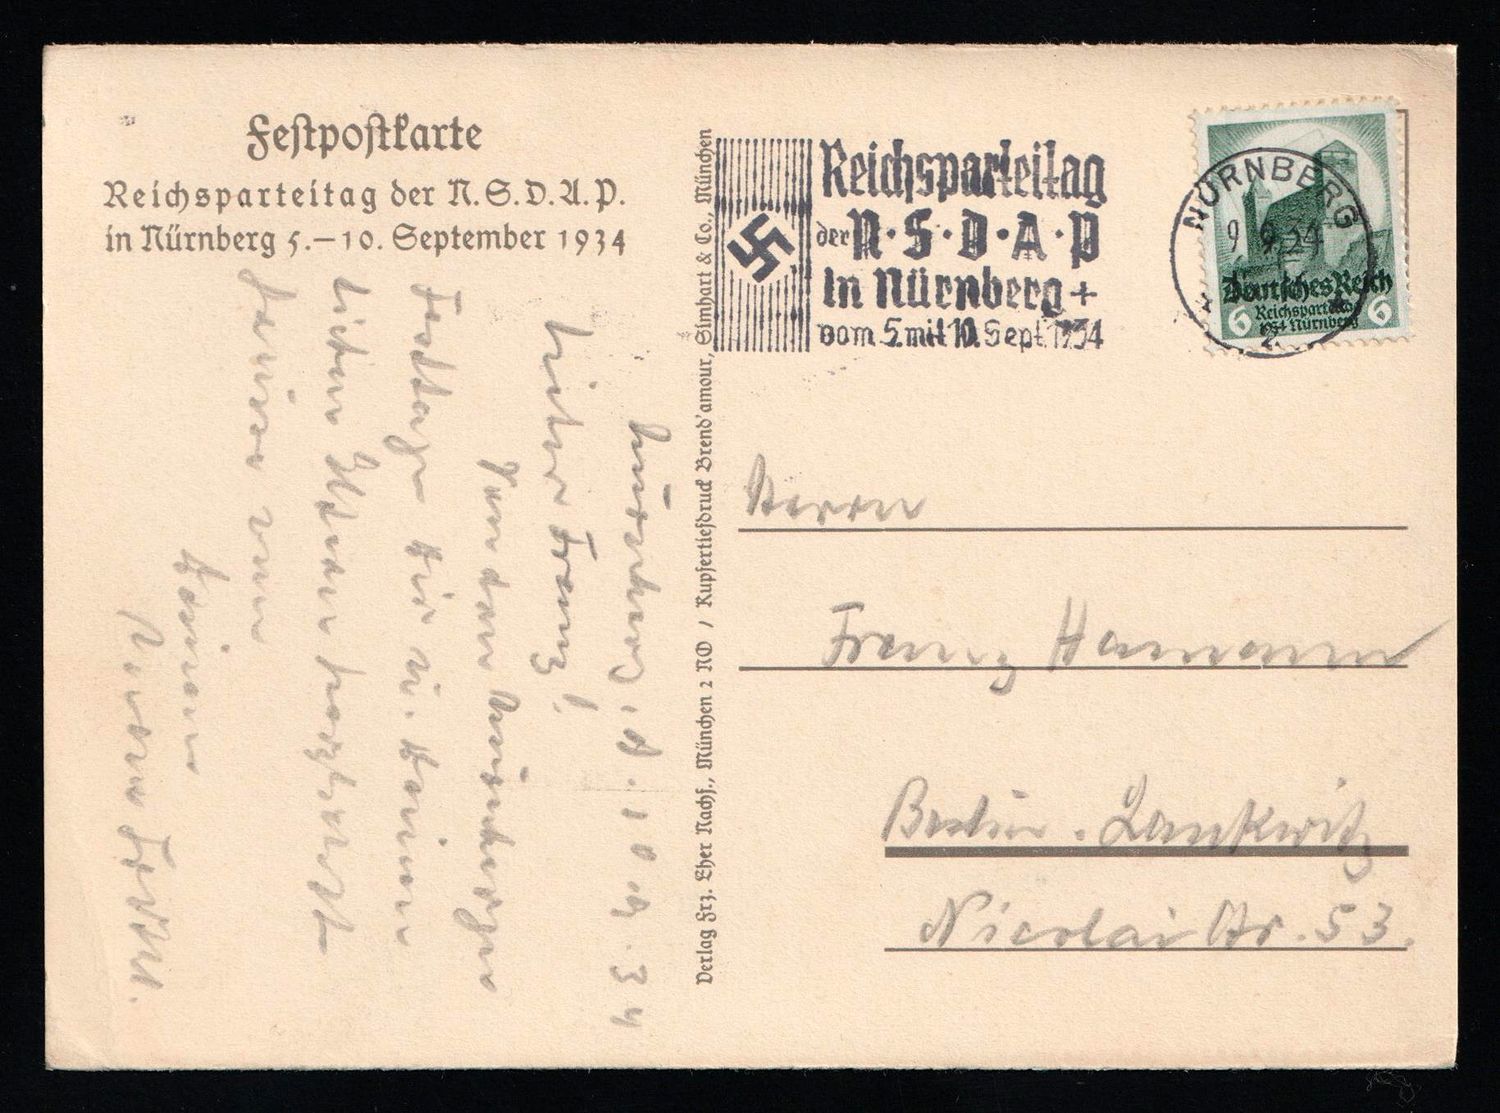 Festpostkarte
Reichsparteitag der N.S.D.A.P.
in Nürnberg 5.–10. September 1934
Verlag Frz. Eher Nachf., München 2 NO / Kupfertiefdruck Brend'amour, Simhart & Co., München
Reichsparteitag
der N·S·D·A·P
in Nürnberg +
vom 5. mit 10. Sept. 1934
NÜRNBERG
9.9.34
2
Deutsches Reich
6 Reichsparteitag 6
1934 Nürnberg
Nürnberg, d. 10.9.34
Lieber Franz!
Von den Nürnberger
Festtage Dir u. Deinen
lieben Eltern herzlichst
Herrn
Franz Hamann
Berlin-Lankwitz
Nicolai Str. 53.